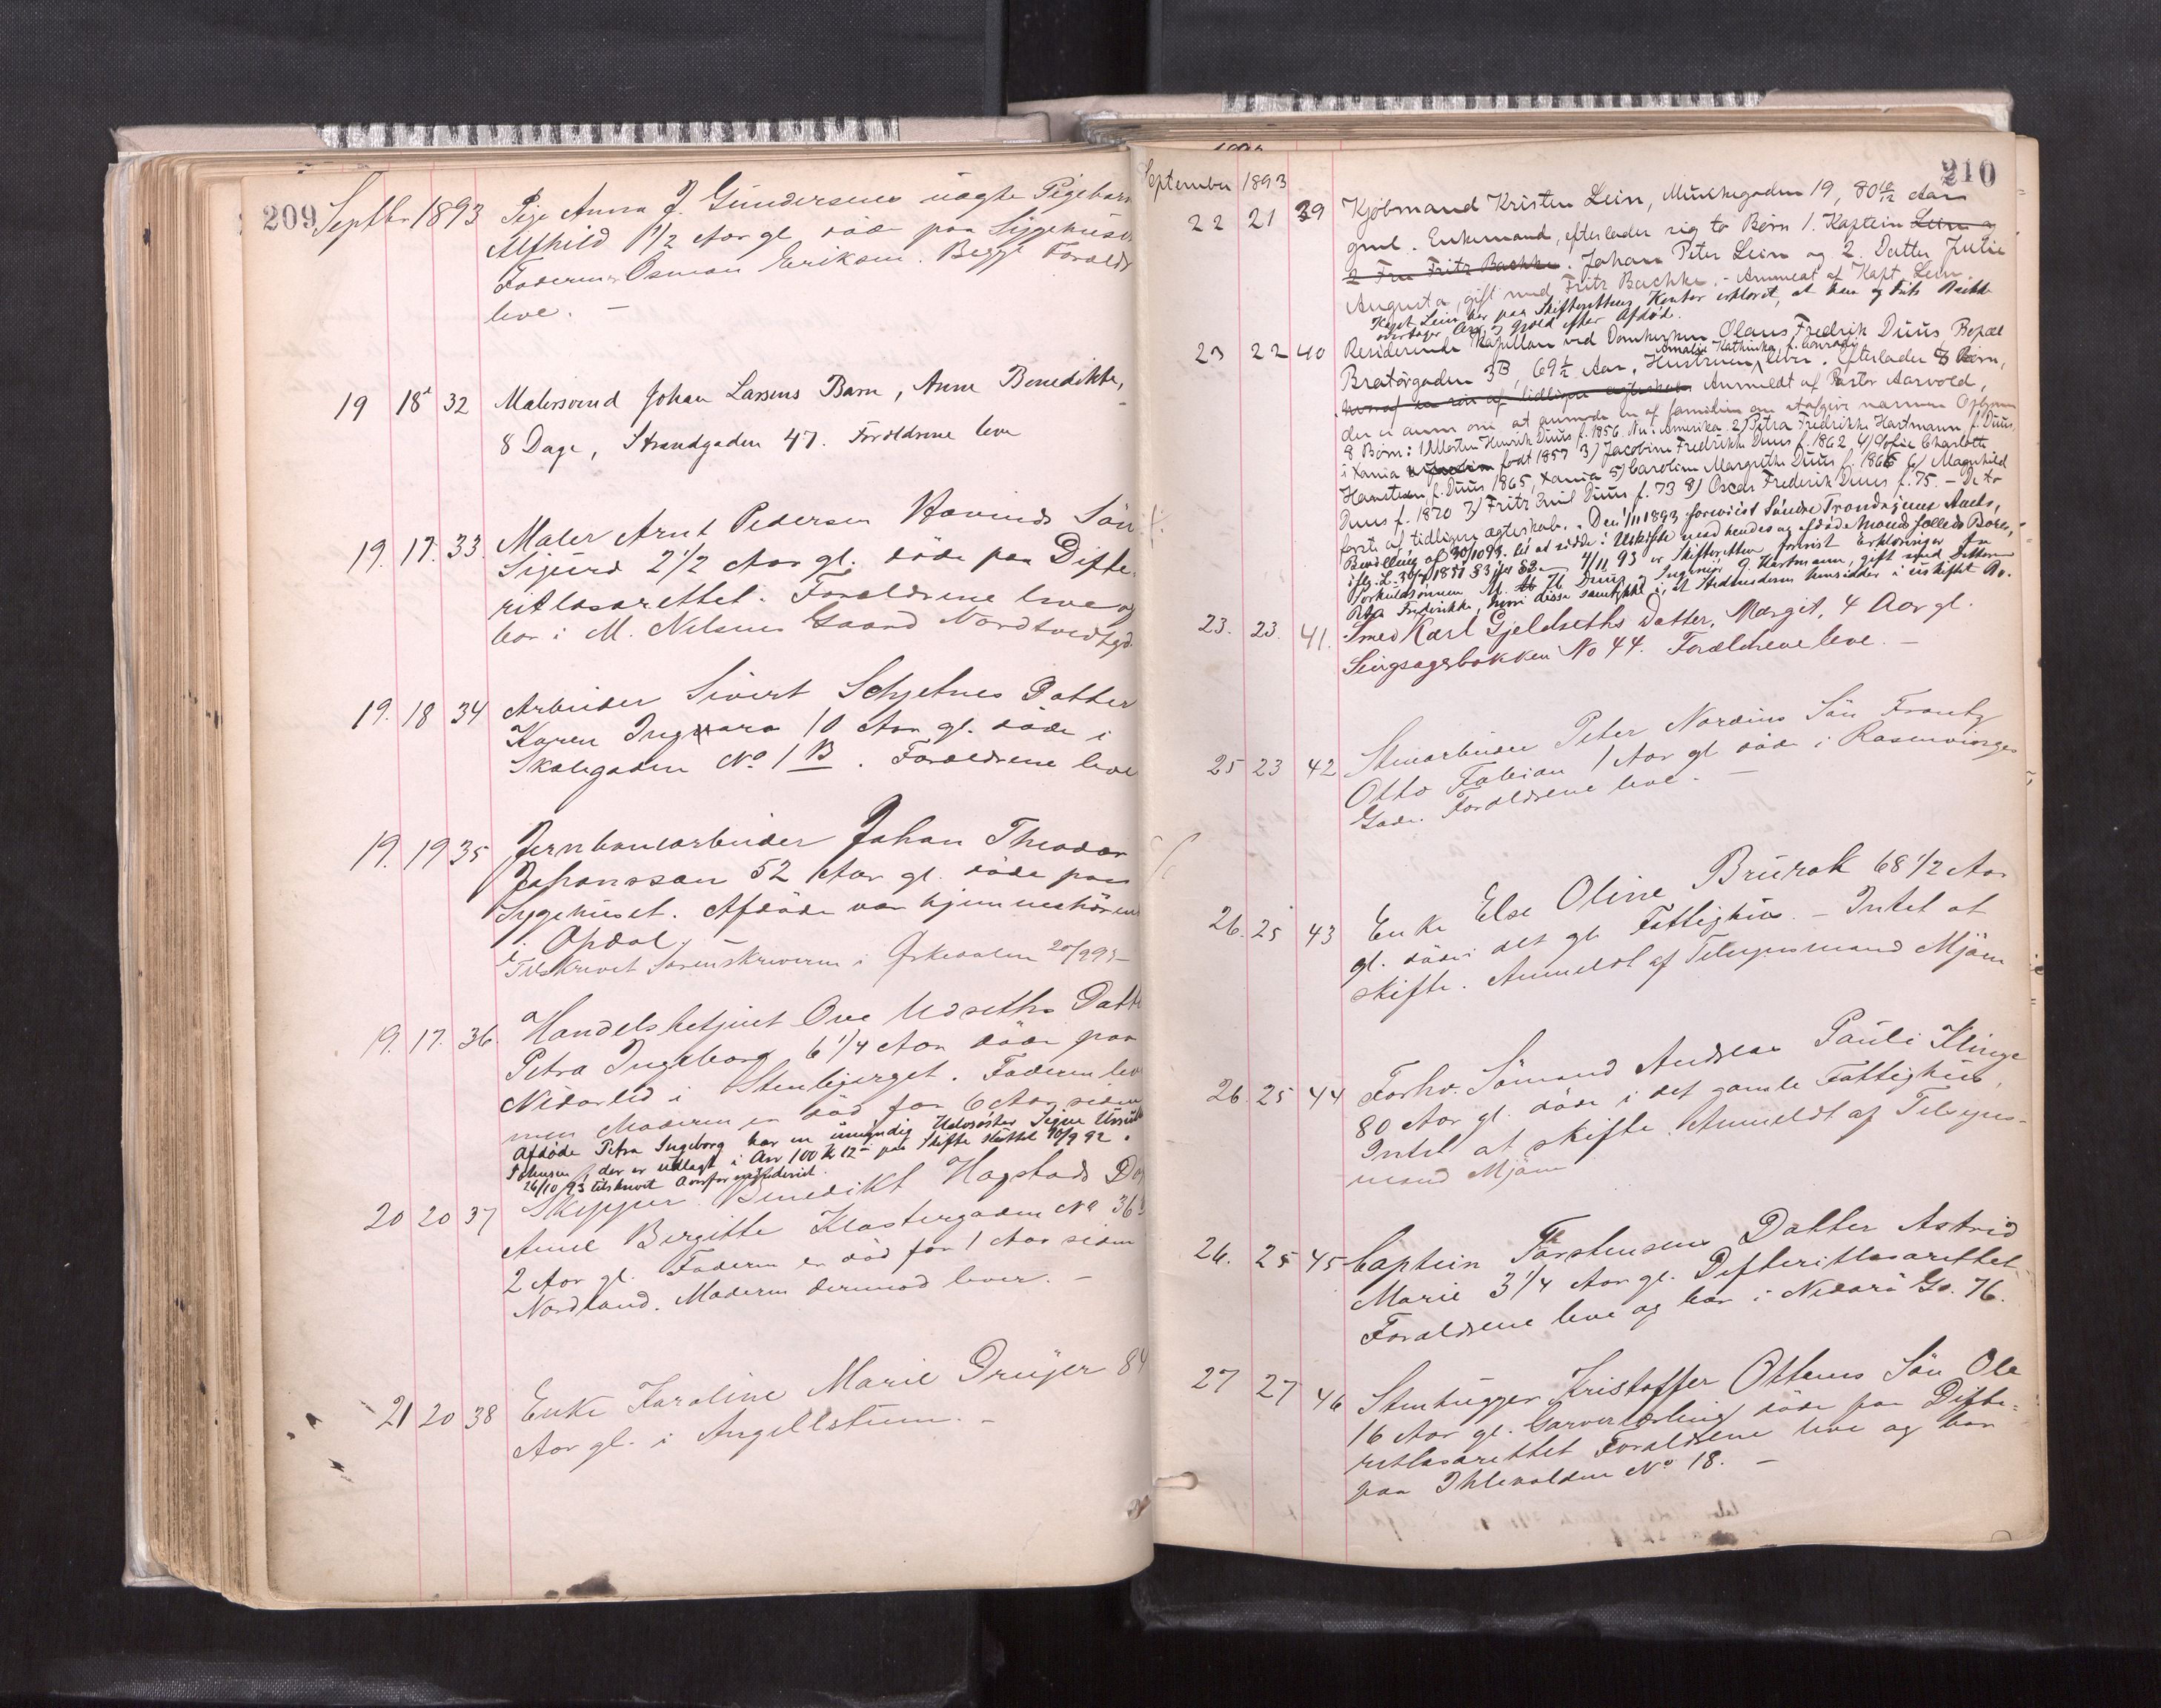 209 Septbr 1893 Pige Anna J. Gundersens uægte Pigebarn
Alfhild 1 1/2 Aar gl. döde paa Sygehuset
Faderen Osman Eriksen. Begge Foræld
leve. —
19 18 32 Malersvend Johan Larsens Barn, Anne Benedikte,
8 Dage, Strandgaden 47. Forældrene leve
19. 17. 33. Maler Arnt Pedersen Havinds Sön
Sigurd 2 1/2 Aar gl. döde paa Difte-
ritlasarettet. Forældrene leve og
bor i M. Nilsens Gaard Nordtvedtgd.
19. 18 34 Arbeider Sivert Schjetnes Datter
Karen Ingvara 10 Aar gl. döde i
Skolegaden No 1 B. Forældrene leve
19. 19 35 Jernbanearbeider Johan Theodor
Johanssan 52 Aar gl. döde paa
Sygehuset. Afdöde var hjemmehörende
i Opdal.
Tilskrevet Sorenskriveren i Orkedalen 20/9 93 —
19. 17. 36. Handelsbetjent Ove Udseths Datt
Petra Ingeborg 6 1/4 Aar döde paa
Nidarlid i Stenbjerget. Faderen lev
men Moderen er död for 6 Aar siden
Afdöde Petra Ingeborg har en umyndig Halvsöster Signe
Johnsen, der er udlagt i Arv 100 Kr 12 - paa Skifte sluttet 10/9 92.
26/10 93 tilskrevet
20 20 37 Skipper Benedikt Hagstads D
Anne Birgitte Klostergaden No 36 b
2 Aar gl. Faderen er död for 1 Aar siden
Nordland. Moderen derimod lever. —
21 20 38 Enke Karoline Marie Drüjer 84
Aar gl. i Angellstuen. —
210
September 1893
22 21 39 Kjöbmand Kristen Lein, Munkegaden 19, 80 10/12 Aar
gml. Enkemand, efterlader sig to Börn 1. Kaptein Lein og
2 Fru Fritz Bachke. Johan Peter Lein og 2. Datter Julie
Augusta, gift med Fritz Bachke. - Anmeldt af Kapt Lein.
Kapt. Lein har paa Skifterettens Kontor erklæret, at han og Fritz Bachke
overtager Arv og Gjæld efter Afdöde.
23 22 40 Residerende Kapellan ved Domkirken Olaus Fredrik Duus, Bopæl
Bratörgaden 3B, 69 1/2 Aar. Hustruen Amalie Kathinka f. Conradi lever. Efterlader 8 Börn,
hvoraf en sön af tidligere ægteskab. Anmeldt af Pastor Aarvold,
der er anm. om at anmode en af familien om at opgive navnene
8 Börn: 1) Morten Henrik Duus f. 1856. Nu i Amerika. 2) Petra Fredrikke Hartmann f. Duus,
i Xania födt 1857 3) Jacobine Fredrikke Duus f. 1862, 4) Sofie Charlotte
Hansteen f. Duus 1865, Xania 5) Caroline Margrethe Duus f. 1866 6) Magnhild
Duus f. 1870 7) Fritz Emil Duus f. 73 8) Oscar Frederik Duus f. 75. — De to
förste af tidligere ægteskab. - Den 1/11 1893 forevist Söndre Trondhjems Amts,
Bevilling af 30/10 93 til at sidde i Uskiftet med hendes og afdöde Mands fælleds Boer,
ifg. L. 30/7 1851 § 3 4/11 93 er Skifteretten forevist Erklæringer fra
M. Th. Duus og Ingeniör G. Hartmann, gift med datteren
Petra Fredrikke, hvori disse samtykke i, at Stedmoderen hensidder i uskiftet Bo.
23. 23. 41. Smed Karl Gjeldseths Datter, Margit, 4 Aar gl.
Singsagerbakken No 44. Forældrene leve. —
25 23 42 Stenarbeider Peter Nordins Sön Frantz
Otto Fabian 1 Aar gl döde i Rosenvinges
Gade. Forældrene leve. —
26. 25 43 Enke Else Oline Brurak 68 1/2 Aar
gl. döde i det gl. Fattighus. — Intet at
skifte. Anmeldt af Tilsynsmand Mjöen
26. 25 44 Forhv. Sömand Andreas Pauli Klinge
80 Aar gl. döde i det gamle Fattighus,
Intet at skifte. Anmeldt af Tilsyns-
mand Mjöen
26. 25 45 Captein Torstensens Datter Astrid
Marie 3 1/4 Aar gl. Difteritlasarettet.
Forældrene leve og bor i Nidarö Gd. 76.
27 27 46 Stenhugger Kristoffer Ottems Sön Ole
16 Aar gl. Garverlærling döde paa Difte-
ritlasarettet Forældrene leve og bor
paa Ihlevolden No 18. —